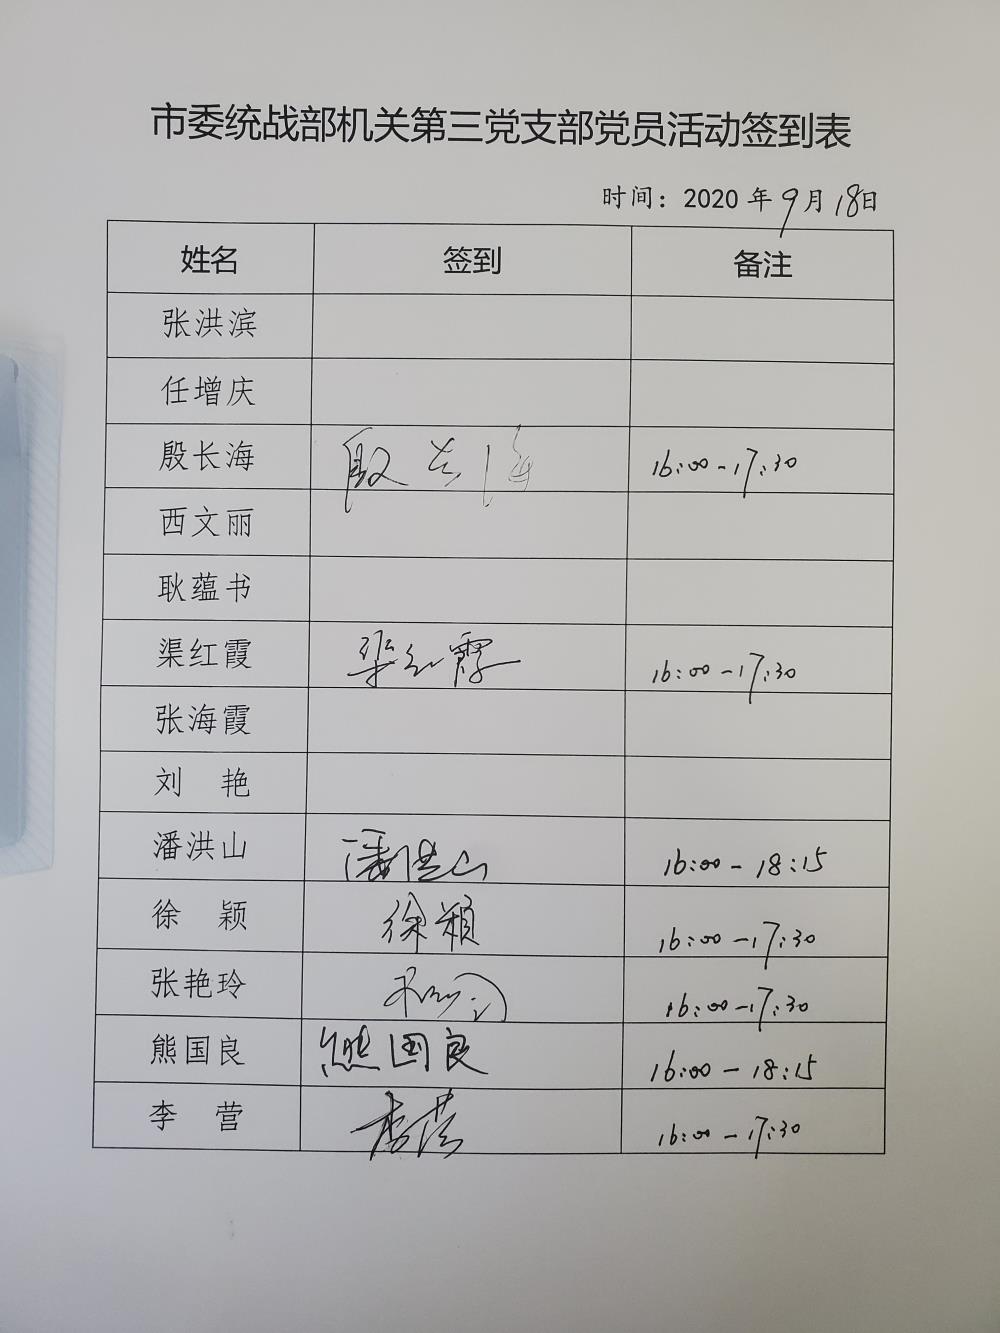 市委统战部机关第三党支部党员活动签到表
时间：2020 年 9 月 18 日
姓名 签到 备注
张洪滨
任增庆
殷长海 殷长海 16:00-17:30
西文丽
耿蕴书
渠红霞 渠红霞 16:00-17:30
张海霞
刘 艳
潘洪山 潘洪山 16:00-18:15
徐 颖 徐颖 16:00-17:30
张艳玲 16:00-17:30
熊国良 熊国良 16:00-18:15
李 营 李营 16:00-17:30